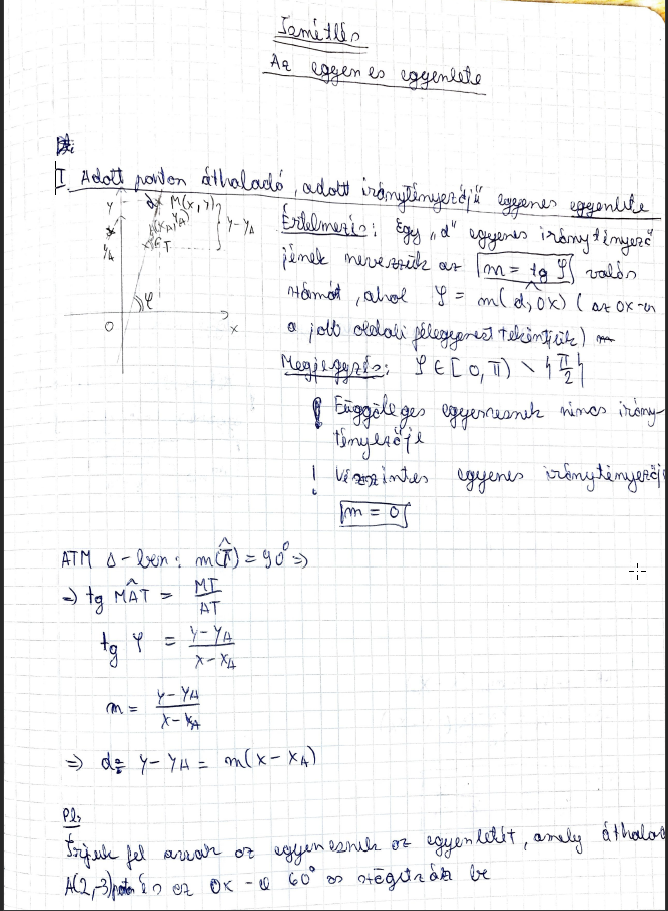 Ismétlés
Az egyenes egyenlete
I. Adott ponton áthaladó, adott iránytényezőjű egyenes egyenlete
y
d
M(x, y)
A(xA, yA)
y-yA
yA
T
φ
O
x
Értelmezés: Egy "d" egyenes iránytényező-
jének nevezzük az m = tg φ valós
számot, ahol φ = m(d,OX) (az OX-en
a jobb oldali félegyenest tekintjük)
Megjegyzés: φ ∈ [0, π) \ {π/2}
! Függőleges egyenesnek nincs irány-
tényezője
! Vízszintes egyenes iránytényezője
m = 0
ATM Δ-ben: m(T̂) = 90° ⇒
⇒ tg MÂT = MT/AT
tg φ = (y-yA)/(x-xA)
m = (y-yA)/(x-xA)
⇒ d: y-yA = m(x-xA)
Pl:
Írjuk fel annak az egyenesnek az egyenletét, amely áthalad
A(2,-3) ponton és az OX-el 60°-os szöget zár be